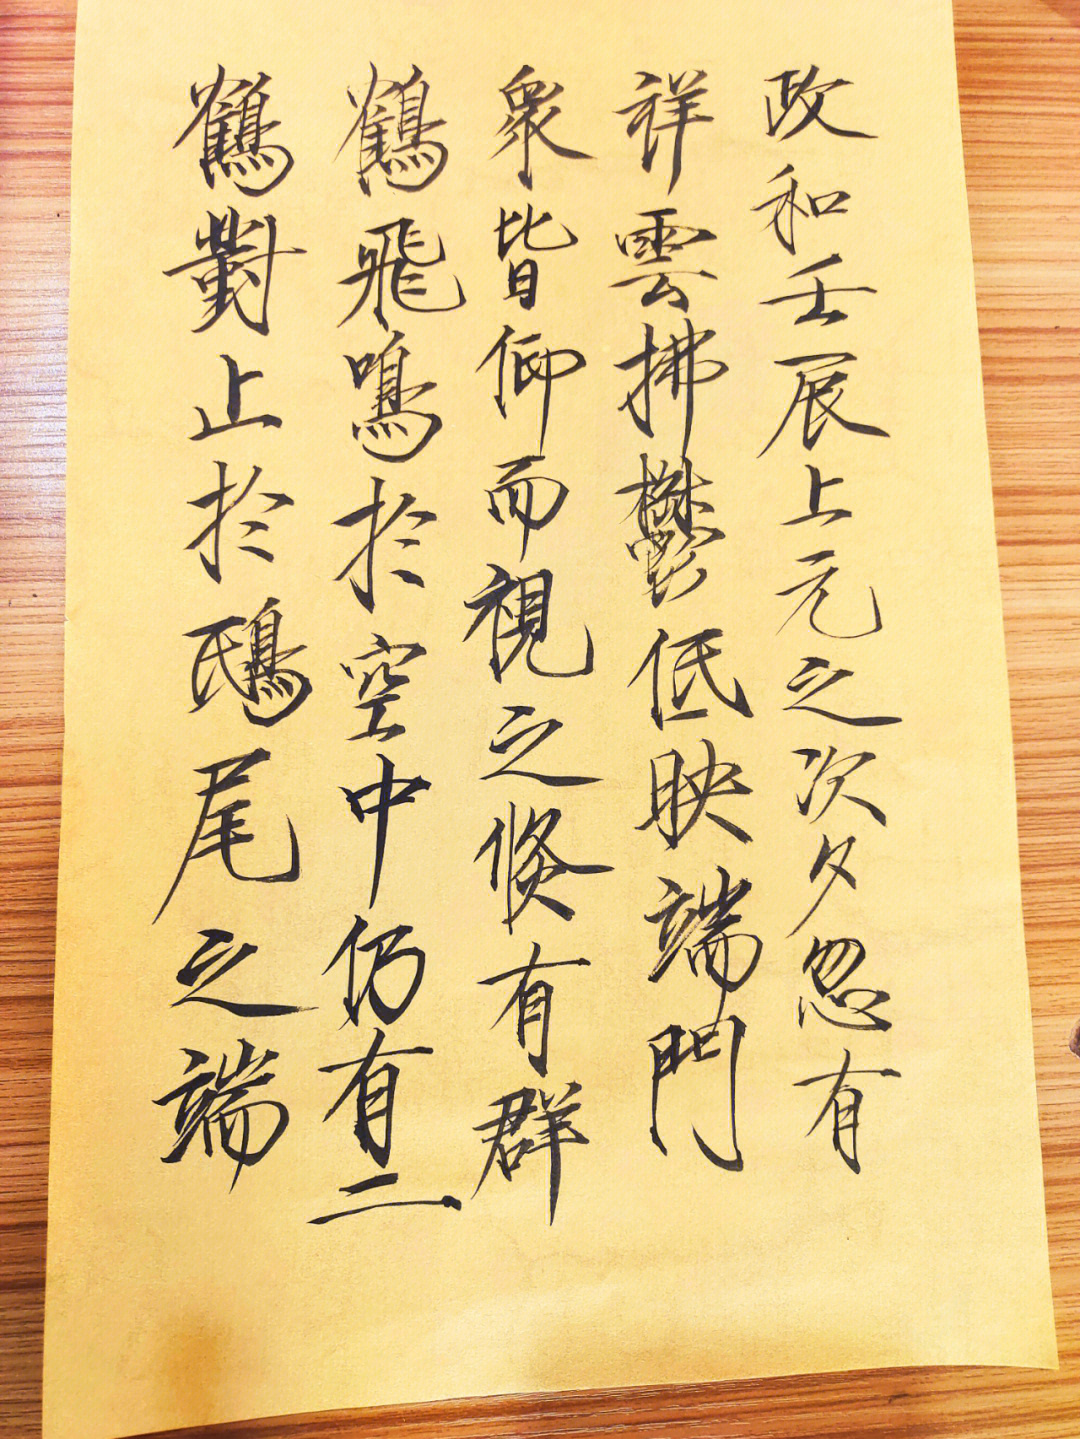 政和壬辰上元之次夕忽有
祥雲拂鬱低映端門
衆皆仰而視之倏有群
鶴飛鳴於空中仍有二
鶴對止於鴟尾之端